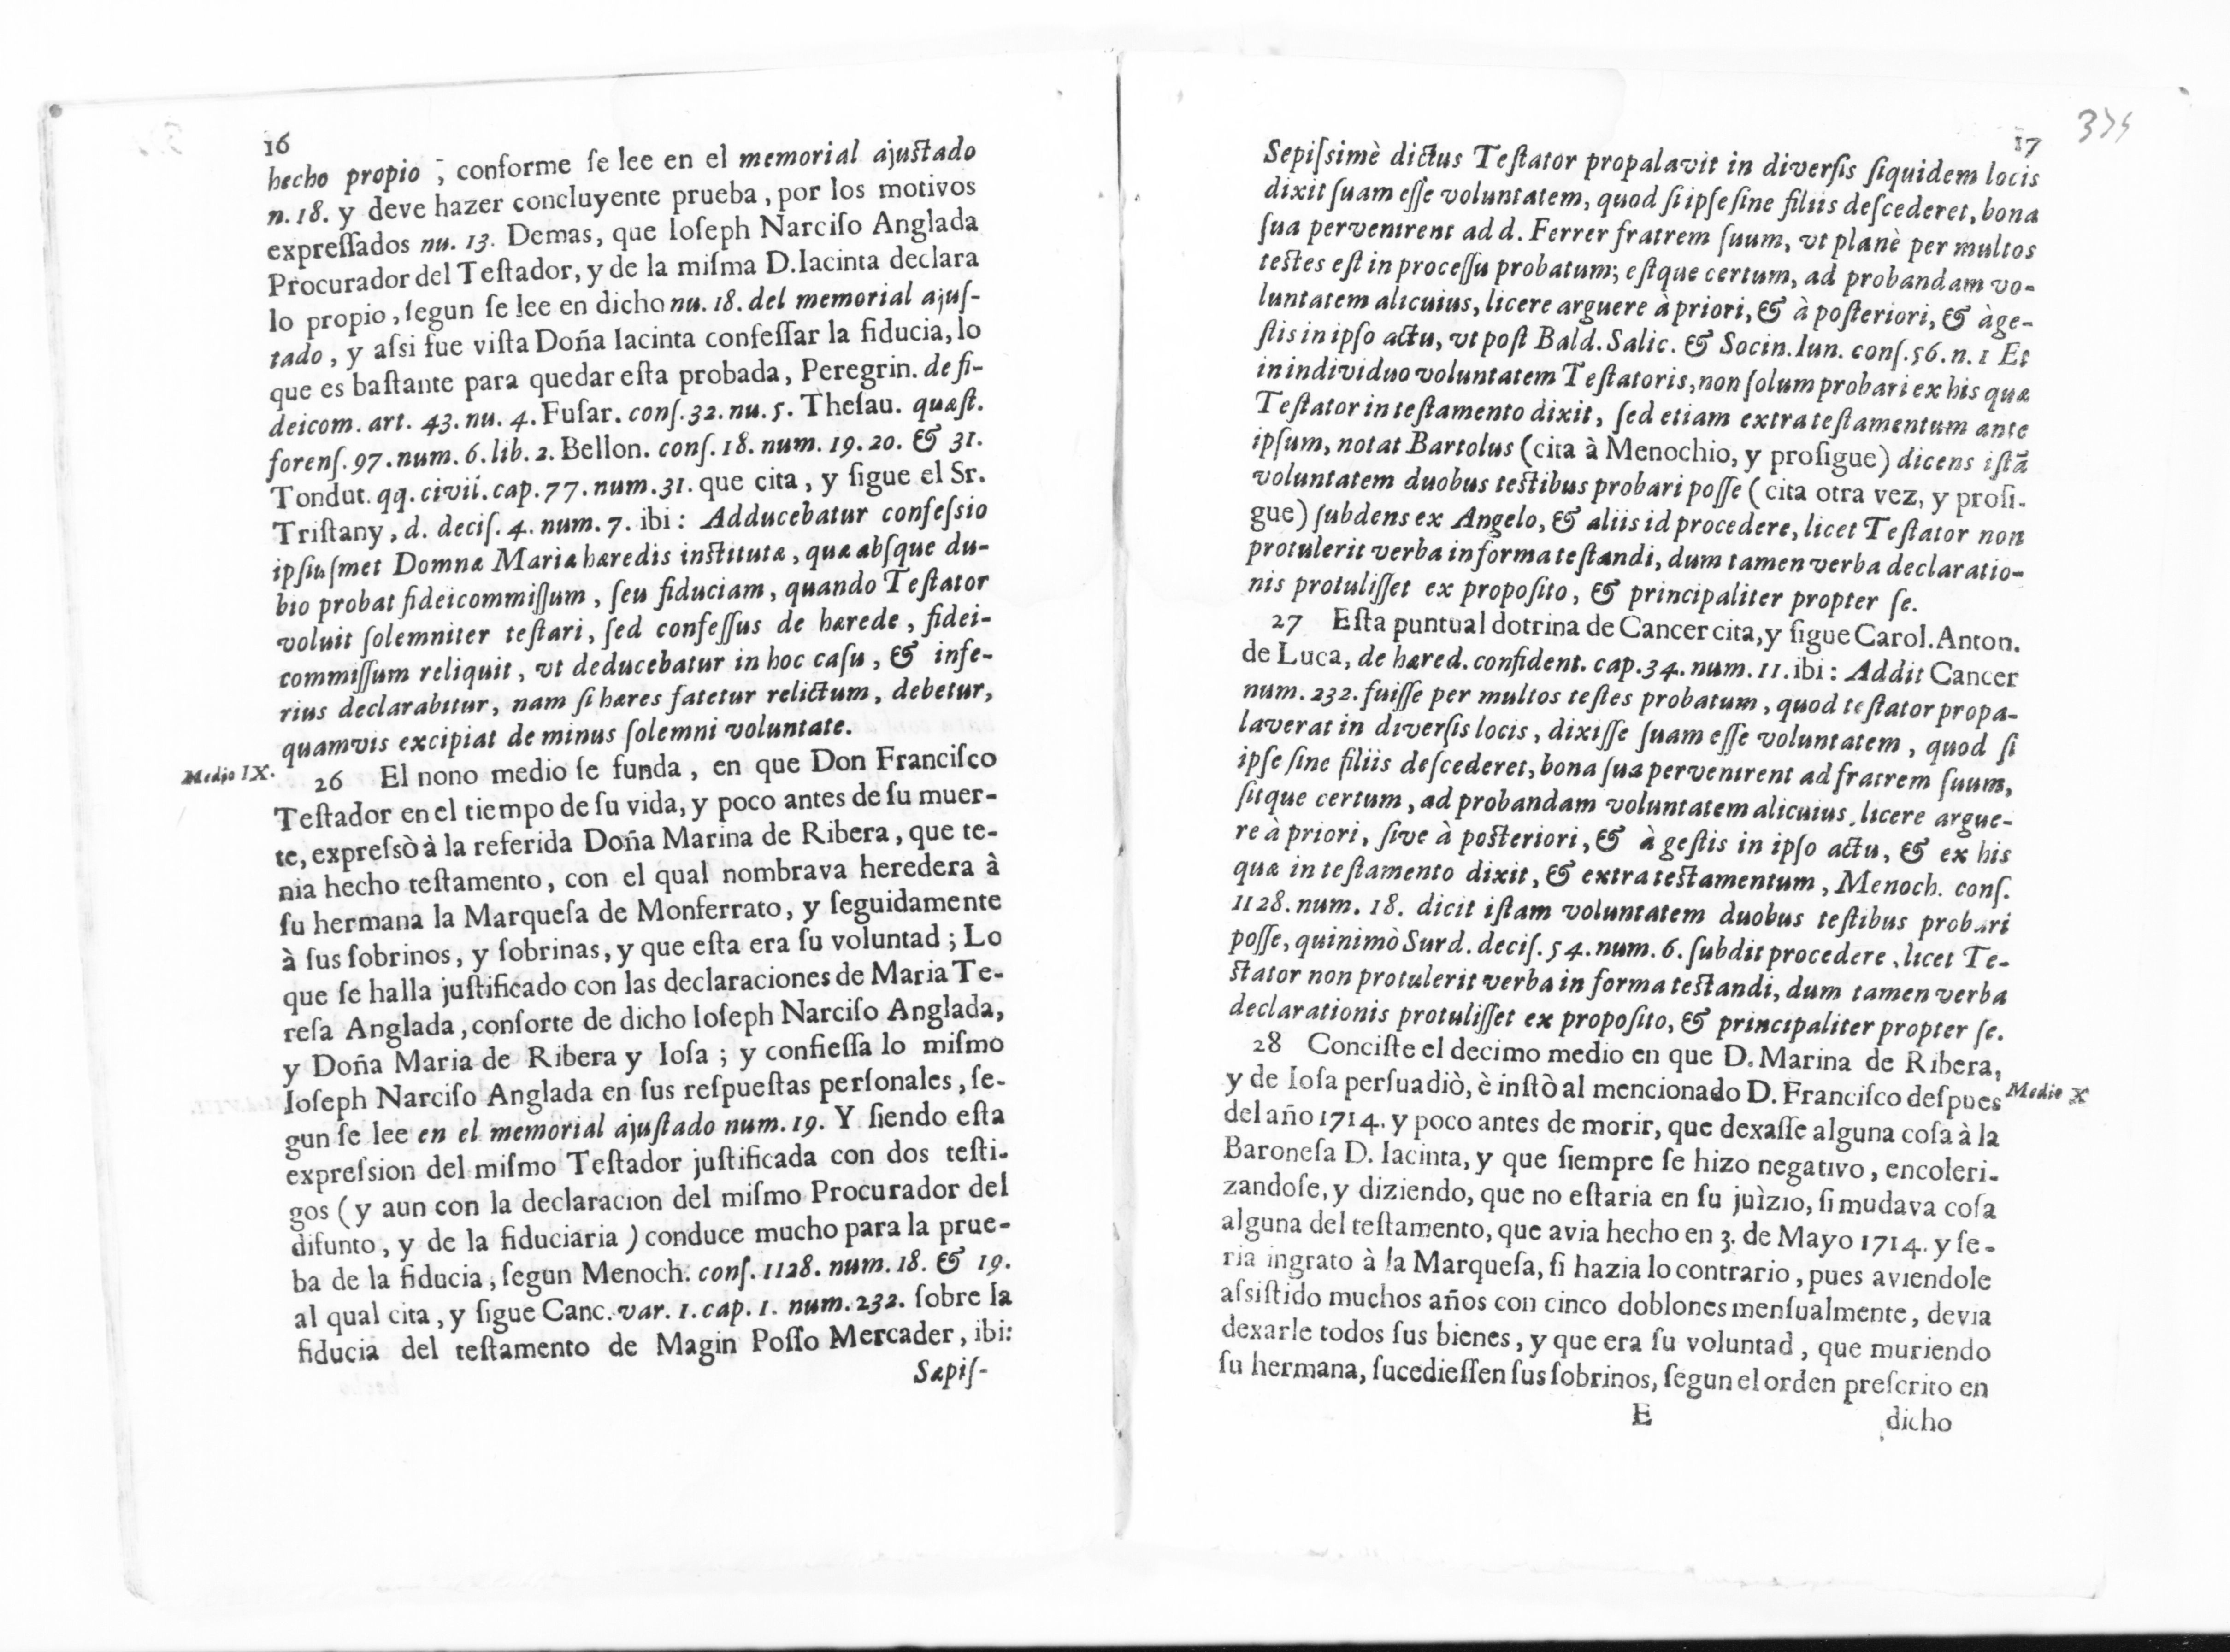 16
hecho propio, conforme ſe lee en el memorial ajuſtado
n. 18. y deve hazer concluyente prueba, por los motivos
expreſſados nu. 13. Demas, que Ioſeph Narciſo Anglada
Procurador del Teſtador, y de la miſma D. Iacinta declara
lo propio, ſegun ſe lee en dicho nu. 18. del memorial ajuſ-
tado, y aſsi fue viſta Doña Iacinta confeſſar la fiducia, lo
que es baſtante para quedar eſta probada, Peregrin. de fi-
deicom. art. 43. nu. 4. Fuſar. conſ. 32. nu. 5. Theſau. quæſt.
forenſ. 97. num. 6. lib. 2. Bellon. conſ. 18. num. 19. 20. & 31.
Tondut. qq. civil. cap. 77. num. 31. que cita, y ſigue el Sr.
Triſtany, d. deciſ. 4. num. 7. ibi: Adducebatur confeſsio
ipſiuſmet Domnæ Mariæ hæredis inſtitutæ, quæ abſque du-
bio probat fideicommiſſum, ſeu fiduciam, quando Teſtator
voluit ſolemniter teſtari, ſed confeſſus de hærede, fidei-
commiſſum reliquit, vt deducebatur in hoc caſu, & infe-
rius declarabitur, nam ſi hæres fatetur relictum, debetur,
quamvis excipiat de minus ſolemni voluntate.
Medio IX.
26 El nono medio ſe funda, en que Don Franciſco
Teſtador en el tiempo de ſu vida, y poco antes de ſu muer-
te, expreſsò à la referida Doña Marina de Ribera, que te-
nia hecho teſtamento, con el qual nombrava heredera à
ſu hermana la Marqueſa de Monferrato, y ſeguidamente
à ſus ſobrinos, y ſobrinas, y que eſta era ſu voluntad; Lo
que ſe halla juſtificado con las declaraciones de Maria Te-
reſa Anglada, conſorte de dicho Ioſeph Narciſo Anglada,
y Doña Maria de Ribera y Ioſa; y confieſſa lo miſmo
Ioſeph Narciſo Anglada en ſus reſpueſtas perſonales, ſe-
gun ſe lee en el memorial ajuſtado num. 19. Y ſiendo eſta
expreſsion del miſmo Teſtador juſtificada con dos teſti-
gos (y aun con la declaracion del miſmo Procurador del
difunto, y de la fiduciaria) conduce mucho para la prue-
ba de la fiducia, ſegun Menoch. conſ. 1128. num. 18. & 19.
al qual cita, y ſigue Canc. var. 1. cap. 1. num. 232. ſobre la
fiducia del teſtamento de Magin Poſſo Mercader, ibi:
Sæpiſ-
17
Sepiſsimè dictus Teſtator propalavit in diverſis ſiquidem locis
dixit ſuam eſſe voluntatem, quod ſi ipſe ſine filiis deſcederet, bona
ſua pervenirent ad d. Ferrer fratrem ſuum, vt planè per multos
teſtes eſt in proceſſu probatum; eſtque certum, ad probandam vo-
luntatem alicuius, licere arguere à priori, & à poſteriori, & à ge-
ſtis in ipſo actu, vt poſt Bald. Salic. & Socin. Iun. conſ. 56. n. 1 Et
in individuo voluntatem Teſtatoris, non ſolum probari ex his quæ
Teſtator in teſtamento dixit, ſed etiam extra teſtamentum ante
ipſum, notat Bartolus (cita à Menochio, y proſigue) dicens iſtã
voluntatem duobus teſtibus probari poſſe (cita otra vez, y proſi-
gue) ſubdens ex Angelo, & aliis id procedere, licet Teſtator non
protulerit verba in forma teſtandi, dum tamen verba declaratio-
nis protuliſſet ex propoſito, & principaliter propter ſe.
27 Eſta puntual dotrina de Cancer cita, y ſigue Carol. Anton.
de Luca, de hæred. confident. cap. 34. num. 11. ibi: Addit Cancer
num. 232. fuiſſe per multos teſtes probatum, quod teſtator propa-
laverat in diverſis locis, dixiſſe ſuam eſſe voluntatem, quod ſi
ipſe ſine filiis deſcederet, bona ſua pervenirent ad fratrem ſuum,
ſitque certum, ad probandam voluntatem alicuius, licere argue-
re à priori, ſive à poſteriori, & à geſtis in ipſo actu, & ex his
quæ in teſtamento dixit, & extra teſtamentum, Menoch. conſ.
1128. num. 18. dicit iſtam voluntatem duobus teſtibus probari
poſſe, quinimò Surd. deciſ. 54. num. 6. ſubdit procedere, licet Te-
ſtator non protulerit verba in forma teſtandi, dum tamen verba
declarationis protuliſſet ex propoſito, & principaliter propter ſe.
28 Conciſte el decimo medio en que D. Marina de Ribera,
y de Ioſa perſuadiò, è inſtò al mencionado D. Franciſco deſpues
Medio X
del año 1714. y poco antes de morir, que dexaſſe alguna coſa à la
Baroneſa D. Iacinta, y que ſiempre ſe hizo negativo, encoleri-
zandoſe, y diziendo, que no eſtaria en ſu juìzio, ſi mudava coſa
alguna del teſtamento, que avia hecho en 3. de Mayo 1714. y ſe-
ria ingrato à la Marqueſa, ſi hazia lo contrario, pues aviendole
aſsiſtido muchos años con cinco doblones menſualmente, devia
dexarle todos ſus bienes, y que era ſu voluntad, que muriendo
ſu hermana, ſucedieſſen ſus ſobrinos, ſegun el orden preſcrito en
E dicho